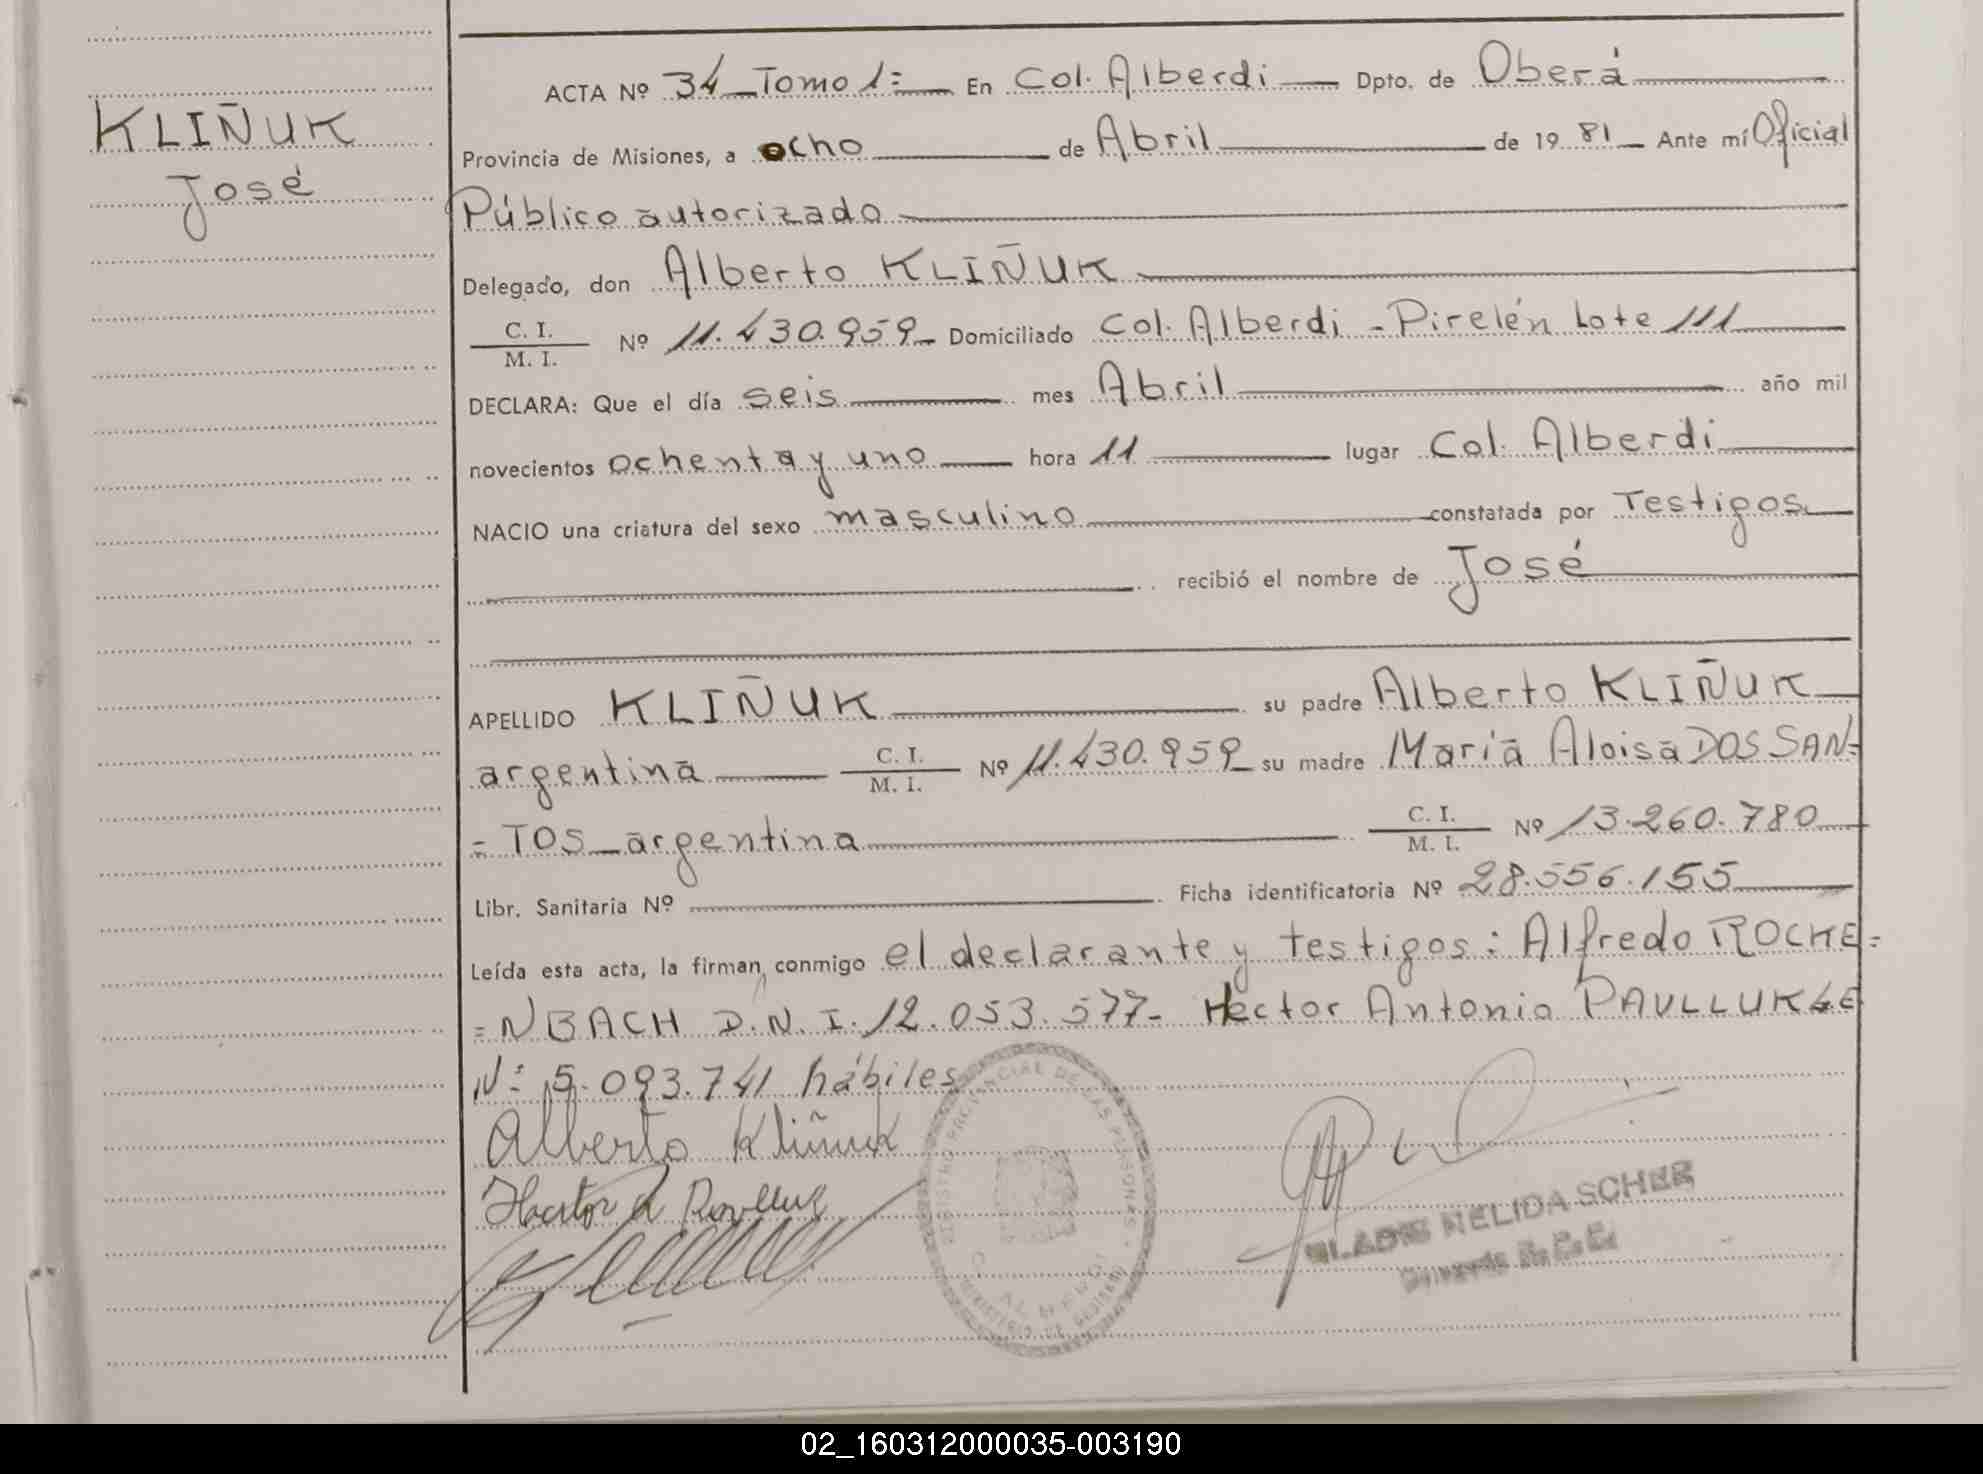 KLIÑUK
José
ACTA Nº 34 Tomo 1= En Col. Alberdi Dpto. de Oberá
Provincia de Misiones, a ocho de Abril de 1981 Ante mí Oficial
Público autorizado
Delegado, don Alberto KLIÑUK
C. I.
M. I. Nº 11.430.959 Domiciliado Col. Alberdi - Pirelén Lote 111
DECLARA: Que el día seis mes Abril año mil
novecientos ochenta y uno hora 11 lugar Col. Alberdi
NACIO una criatura del sexo masculino constatada por Testigos
recibió el nombre de José
APELLIDO KLIÑUK su padre Alberto KLIÑUK
argentina C. I. M. I. Nº 11.430.959 su madre María Aloisa DOS SAN=
=TOS argentina C. I. M. I. Nº 13.260.780
Libr. Sanitaria Nº Ficha identificatoria Nº 28.556.155
Leída esta acta, la firman conmigo el declarante y testigos: Alfredo ROCKE=
=NBACH D.N.I. 12.053.577- Hector Antonio PAVLLUK L.E
Nº 5.093.741 hábiles
Alberto Kliñuk
Hector A
REGISTRO PROVINCIAL DE LAS PERSONAS
MINISTERIO DE GOBIERNO
GLADIS NELIDA SCHER
02_160312000035-003190